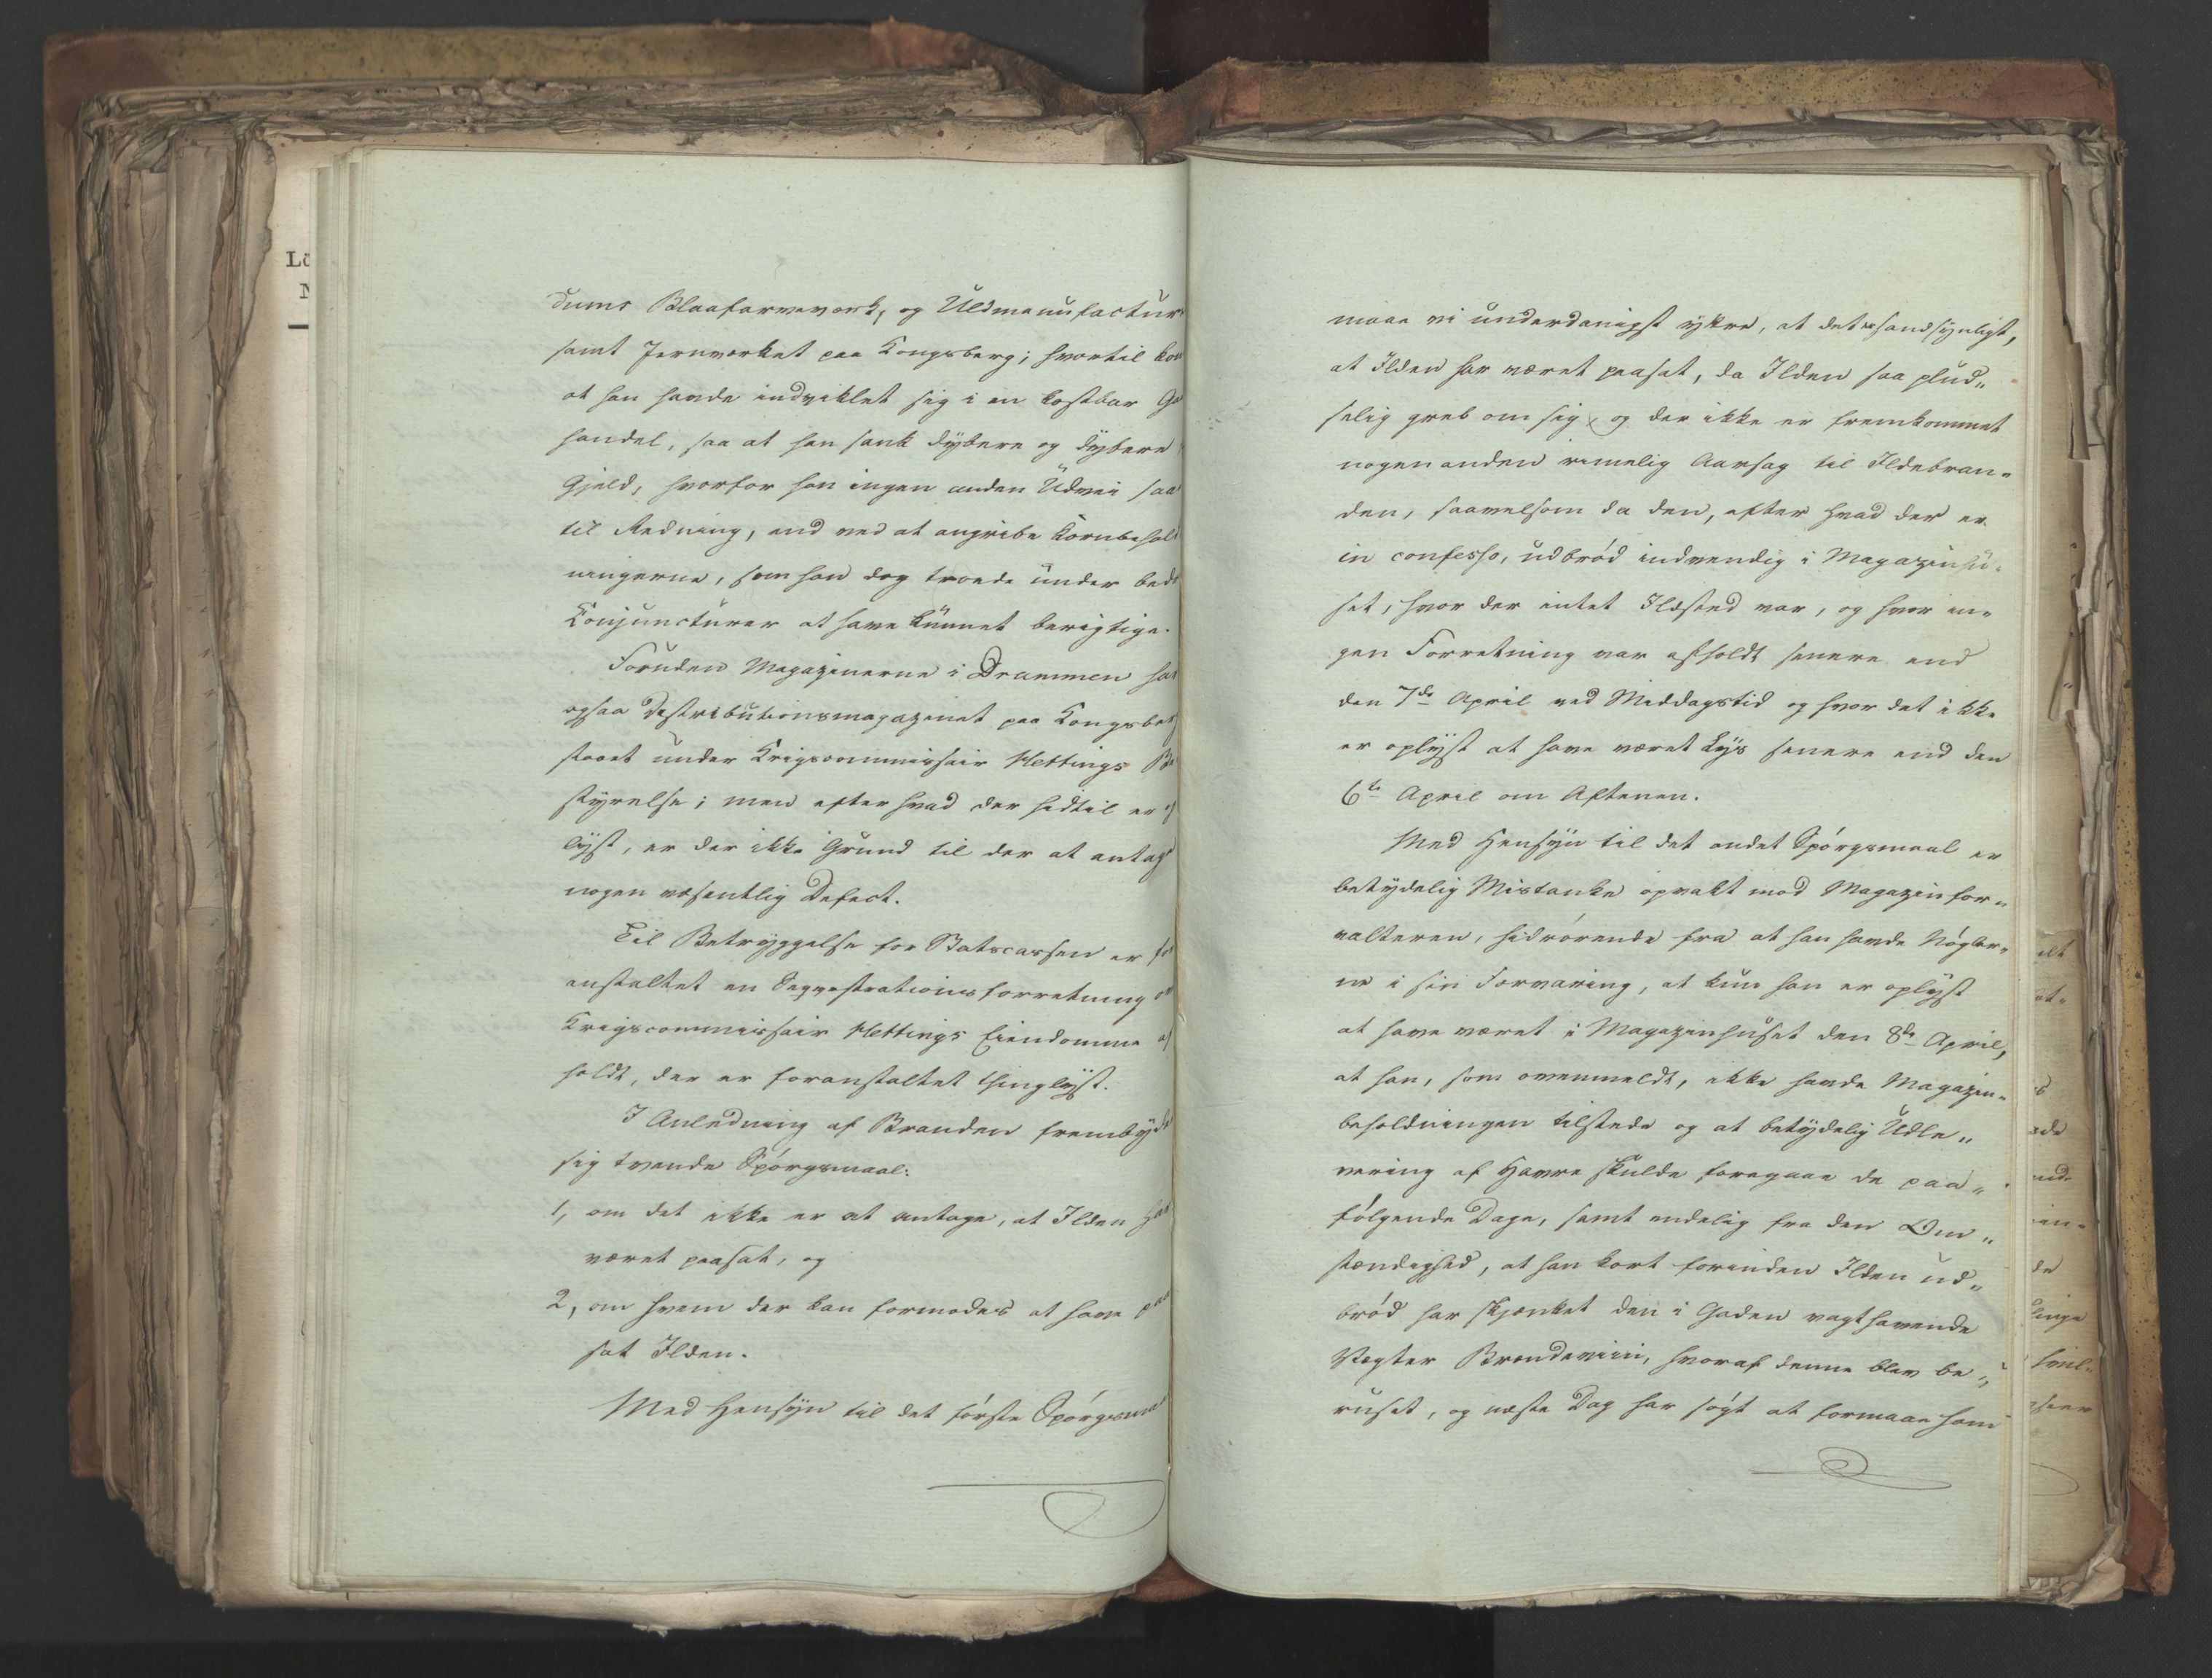 dums Blaafarveverk, og Uldmanufactur
samt Jernverket paa Kongsberg; hvortil kom
at han havde indviklet sig i en kostbar
handel, saa at han sank dybere og dybere
Gjeld, hvorfor han ingen anden Udvei saa
til Redning, end ved at angribe Kornbehold
ningerne, som han dog troede under bedr
Conjuncturer at have kunnet berigtige.
Foruden Magazinerne i Drammen har
ogsaa Distributionsmagazinet paa Kongsberg
staaet under Krigscommissair Hettings Be
styrelse; men efter hvad der hidtil er op
lyst, er der ikke Grund til der at antage
nogen væsentlig Defect.
Til Betryggelse for Statscassen er for
anstaltet en Seqvestrationsforretning over
Krigscommissair Hettings Eiendomme af
holdt, der er foranstaltet thinglyst.
I Anledning af Branden fremby de
sig tvende Spørgsmaal:
1, om det ikke er at antage, at Ilden har
været paasat, og
2, om hvem der kan formodes at have paa
sat Ilden.
Med Hensyn til det første Spørgsmaal
maae vi underdanigst yttre, at det er sandsynligt,
at Ilden har været paasat, da Ilden saa plud„
selig greb om sig, og der ikke er fremkommet
nogen anden rimelig Aarsag til Ildebran„
den, saavelsom da den, efter hvad der er
in confesso, udbrød indvendig i Magazinhu„
set, hvor der intet Ildsted var, og hvor in„
gen Forretning var afholdt senere end
den 7de April ved Middagstid og hvor det ikke
er oplyst at have været Lys senere end den
6te April om Aftenen.
Med Hensyn til det andet Spørgsmaal er
betydelig Mistanke opvakt mod Magazinfor„
valteren, hidrørende fra at han havde Nøgler„
ne i sin Forvaring, at kun han er oplyst
at have været i Magazinhuset den 8de April,
at han, som ovenmeldt, ikke havde Magazin„
beholdningen tilstede og at betydelig Udle„
vering af Havre skulde foregaae de paa„
følgende Dage, samt endelig fra den Om„
stændighed, at han kort forinden Ilden ud„
brød har skjænket den i Gaden vagthavende
Vægter Brændeviin, hvoraf denne blev be„
ruset, og næste Dag har søgt at formaae ham